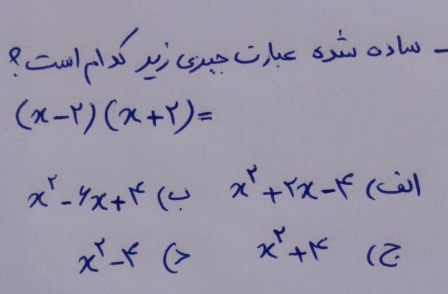 - ساده شده عبارت جبری زیر کدام است؟
(x-۲)(x+۲)=
الف) x^۲+۲x-۴ ب) x^۲-۶x+۴
ج) x^۲+۴ د) x^۲-۴